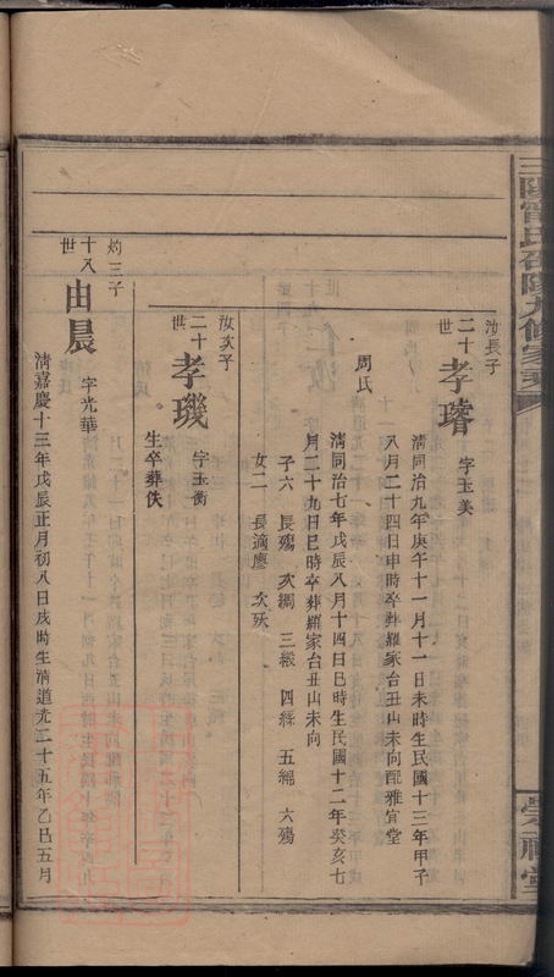 汝長子
二十世
孝璿
字玉美
清同治九年庚午十一月十一日未時生民國十三年甲子
八月二十四日申時卒葬羅家台丑山未向配雅宜堂
周氏
清同治七年戊辰八月十四日巳時生民國十二年癸亥七
月二十九日巳時卒葬羅家台丑山未向
子六 長殤 次綢 三緞 四絲 五綿 六殤
女二 長適廖 次殀
汝次子
二十世
孝璣
字玉衡
生卒葬佚
灼三子
十八世
由晨
字光華
清嘉慶十三年戊辰正月初八日戌時生清道光二十五年乙巳五月